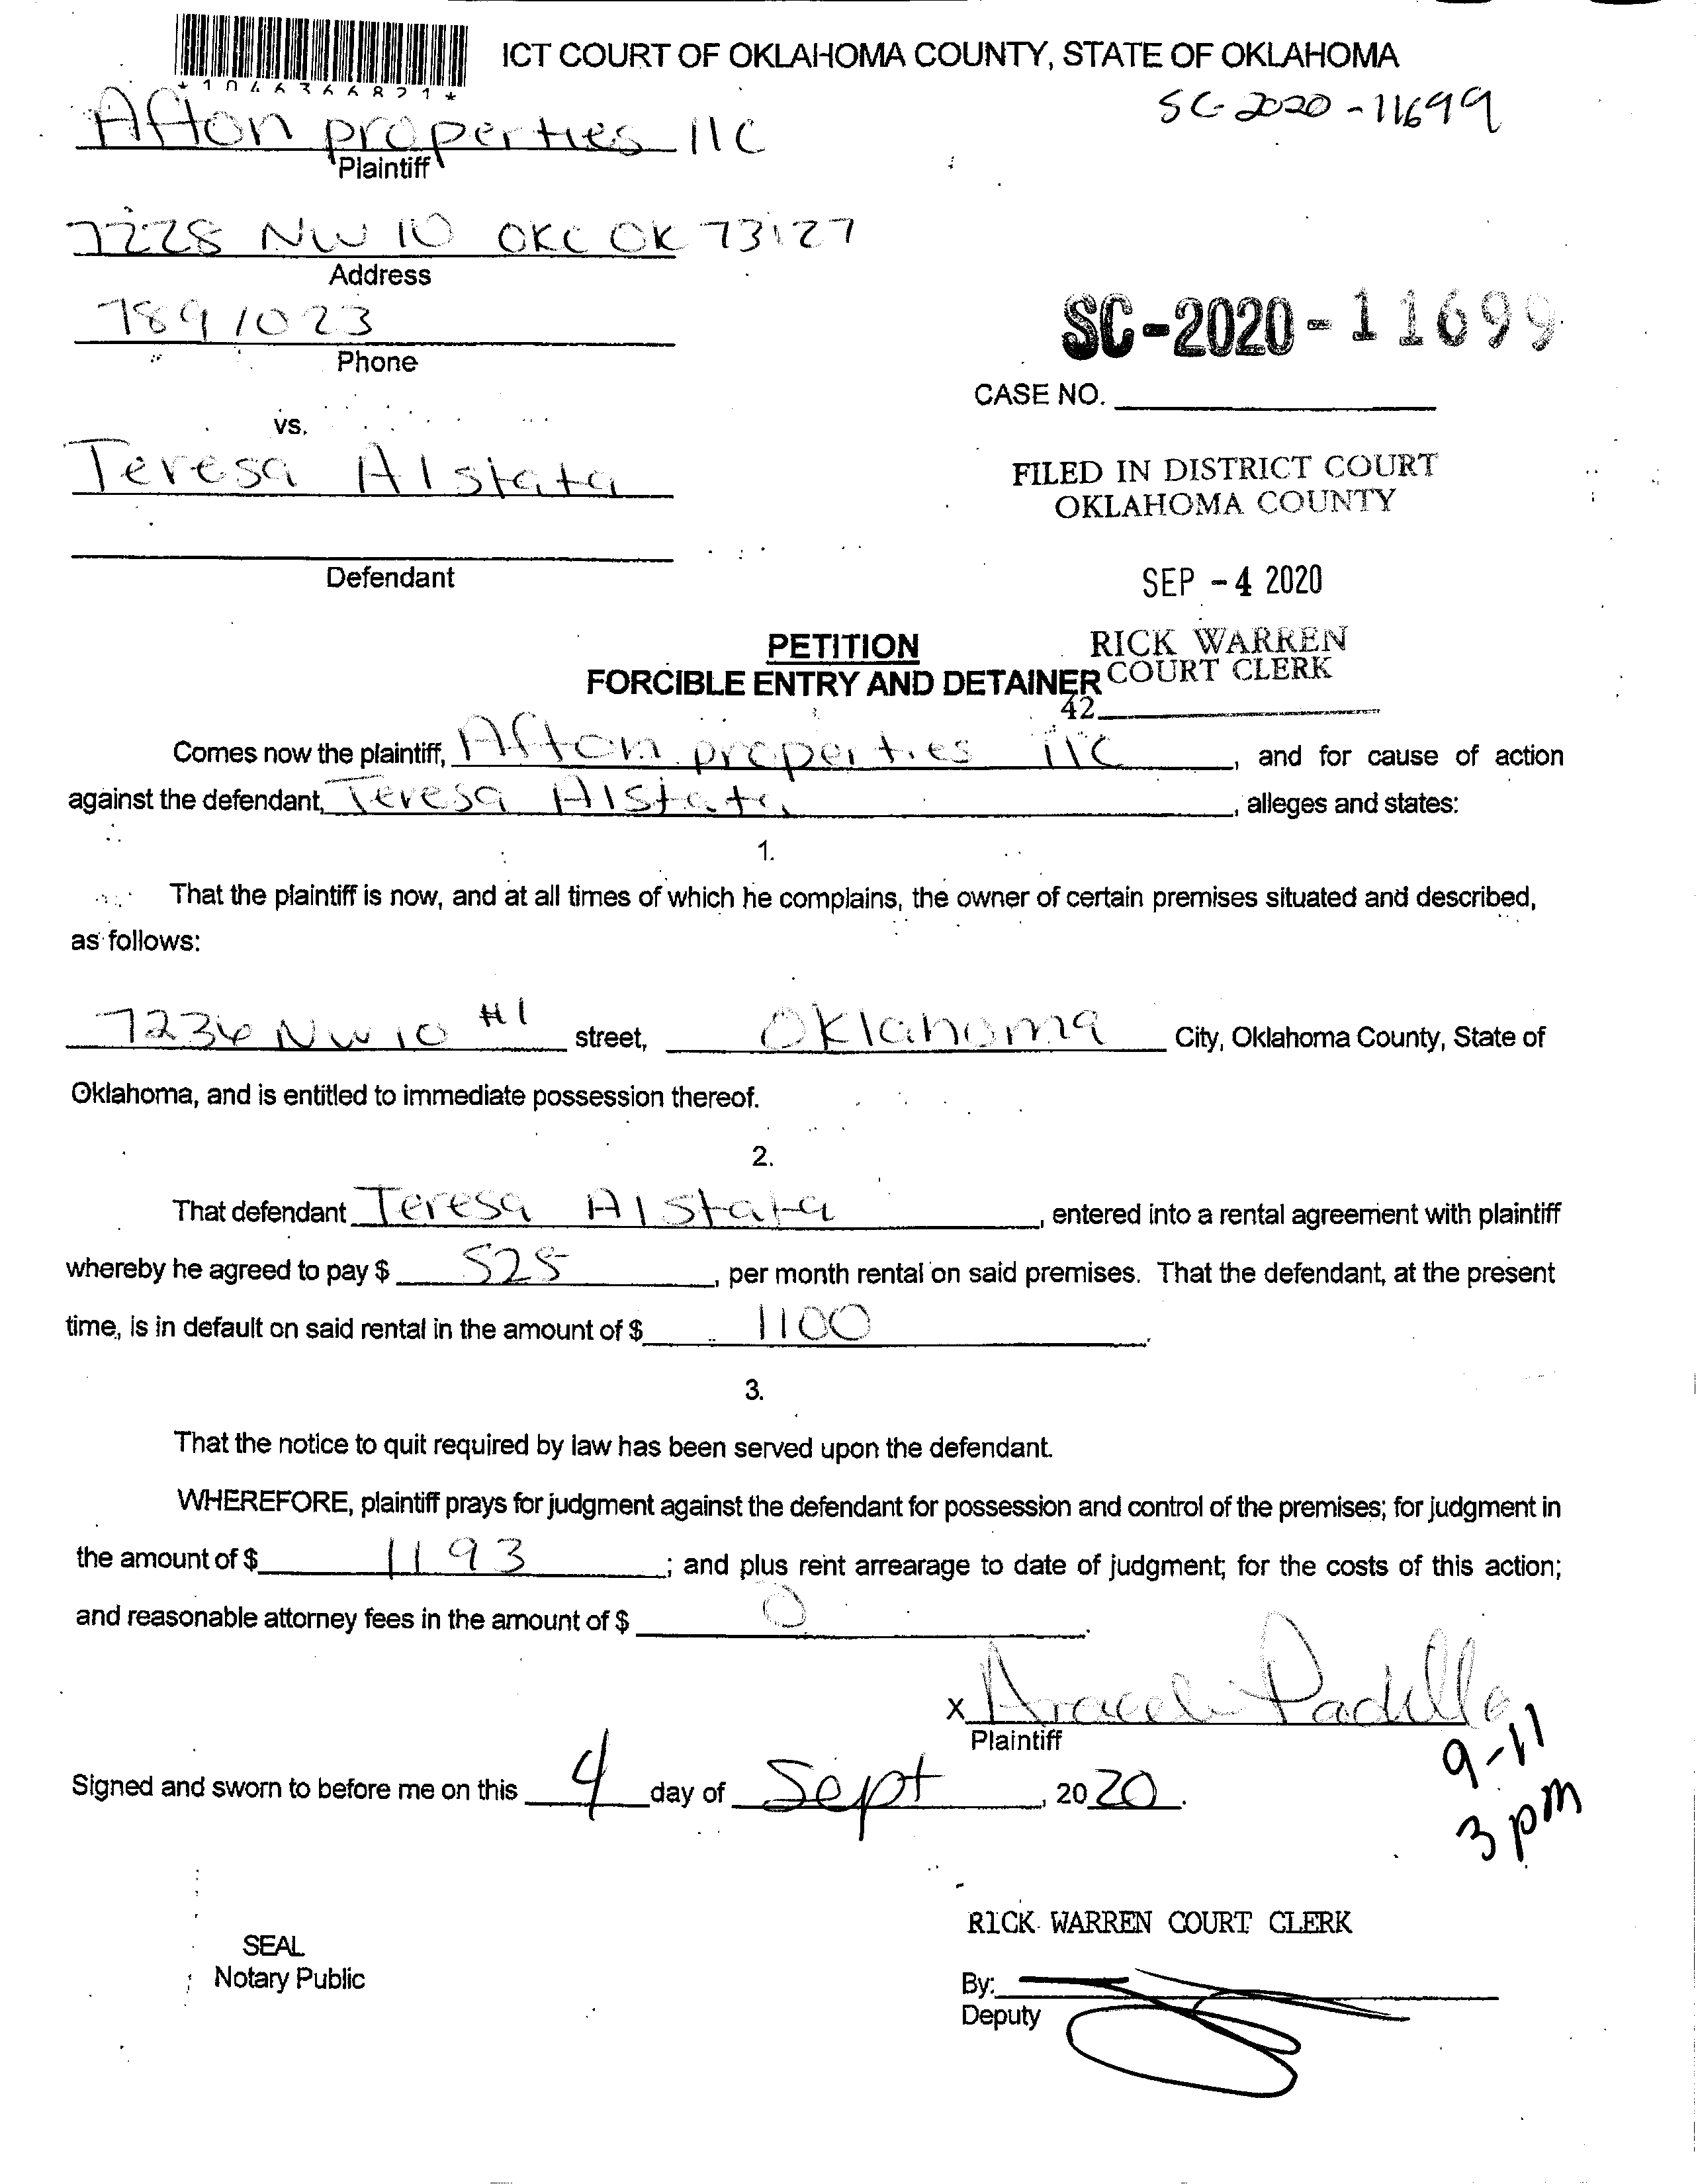 ICT COURT OF OKLAHOMA COUNTY, STATE OF OKLAHOMA
*1046366821*
SC-2020-11699
Afton properties llc
Plaintiff
7228 NW 10 OKC OK 73127
Address
7891023
Phone
SC-2020-11699
CASE NO.
vs.
Teresa Alstata
FILED IN DISTRICT COURT
OKLAHOMA COUNTY
Defendant
SEP -4 2020
PETITION
RICK WARREN
FORCIBLE ENTRY AND DETAINER
COURT CLERK
42
Comes now the plaintiff, Afton properties llc, and for cause of action
against the defendant, Teresa Alstata, alleges and states:
1.
That the plaintiff is now, and at all times of which he complains, the owner of certain premises situated and described,
as follows:
7236 NW 10 #1 street, Oklahoma City, Oklahoma County, State of
Oklahoma, and is entitled to immediate possession thereof.
2.
That defendant Teresa Alstata, entered into a rental agreement with plaintiff
whereby he agreed to pay $ 525, per month rental on said premises. That the defendant, at the present
time, is in default on said rental in the amount of $ 1100.
3.
That the notice to quit required by law has been served upon the defendant.
WHEREFORE, plaintiff prays for judgment against the defendant for possession and control of the premises; for judgment in
the amount of $ 1193; and plus rent arrearage to date of judgment; for the costs of this action;
and reasonable attorney fees in the amount of $ 0.
X Araceli Padilla
Plaintiff
9-11
3 pm
Signed and sworn to before me on this 4 day of Sept, 2020.
RICK WARREN COURT CLERK
SEAL
Notary Public
By:
Deputy